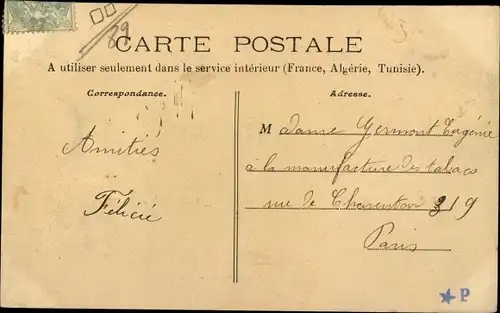 89
CARTE POSTALE
A utiliser seulement dans le service intérieur (France, Algérie, Tunisie).
Correspondance.
Amitiés
Félicie
Adresse.
Madame Germont Eugénie
à la manufacture des tabacs
rue de Charenton 319
Paris
★ P